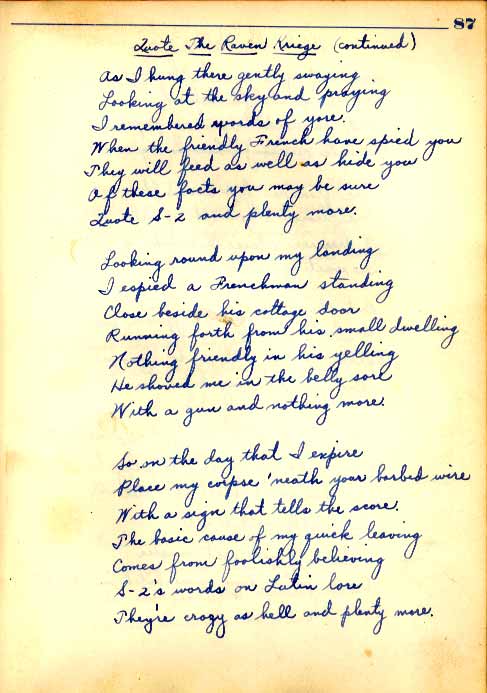 87
Quote The Raven Kriege (continued)
As I hung there gently swaying
Looking at the sky and praying
I remembered words of yore.
When the friendly French have spied you
They will feed as well as hide you
Of these facts you may be sure
Quote S-2 and plenty more.
Looking round upon my landing
I espied a Frenchman standing
Close beside his cottage door
Running forth from his small dwelling
Nothing friendly in his yelling
He shoved me in the belly sore
With a gun and nothing more.
So on the day that I expire
Place my corpse 'neath your barbed wire
With a sign that tells the score.
The basic cause of my quick leaving
Comes from foolishly believing
S-2's words on Latin lore
They're crazy as hell and plenty more.